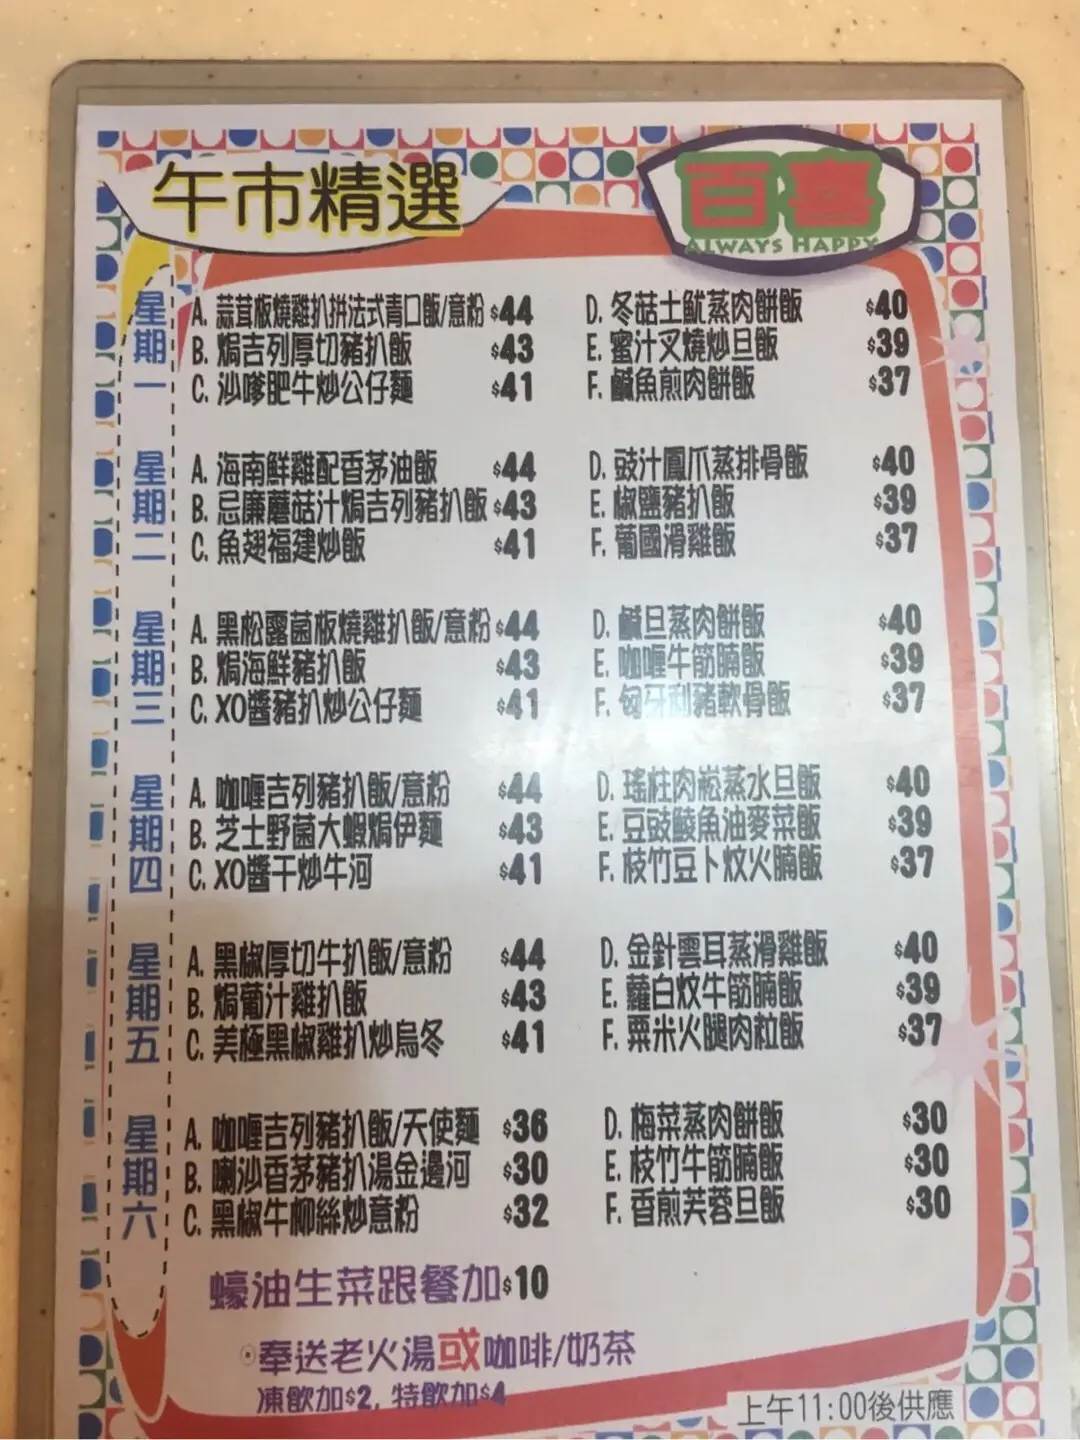 午市精選
百喜
ALWAYS HAPPY
星期一
A. 蒜茸板燒雞扒拼法式青口飯/意粉 $44
B. 焗吉列厚切豬扒飯 $43
C. 沙嗲肥牛炒公仔麵 $41
D. 冬菇土魷蒸肉餅飯 $40
E. 蜜汁叉燒炒旦飯 $39
F. 鹹魚煎肉餅飯 $37
星期二
A. 海南鮮雞配香茅油飯 $44
B. 忌廉蘑菇汁焗吉列豬扒飯 $43
C. 魚翅福建炒飯 $41
D. 豉汁鳳爪蒸排骨飯 $40
E. 椒鹽豬扒飯 $39
F. 葡國滑雞飯 $37
星期三
A. 黑松露菌板燒雞扒飯/意粉 $44
B. 焗海鮮豬扒飯 $43
C. XO醬豬扒炒公仔麵 $41
D. 鹹旦蒸肉餅飯 $40
E. 咖喱牛筋腩飯 $39
F. 匈牙利豬軟骨飯 $37
星期四
A. 咖喱吉列豬扒飯/意粉 $44
B. 芝士野菌大蝦焗伊麵 $43
C. XO醬干炒牛河 $41
D. 瑤柱肉崧蒸水旦飯 $40
E. 豆豉鯪魚油麥菜飯 $39
F. 枝竹豆卜炆火腩飯 $37
星期五
A. 黑椒厚切牛扒飯/意粉 $44
B. 焗葡汁雞扒飯 $43
C. 美極黑椒雞扒炒烏冬 $41
D. 金針雲耳蒸滑雞飯 $40
E. 蘿白炆牛筋腩飯 $39
F. 粟米火腿肉粒飯 $37
星期六
A. 咖喱吉列豬扒飯/天使麵 $36
B. 喇沙香茅豬扒湯金邊河 $30
C. 黑椒牛柳絲炒意粉 $32
D. 梅菜蒸肉餅飯 $30
E. 枝竹牛筋腩飯 $30
F. 香煎芙蓉旦飯 $30
蠔油生菜跟餐加$10
奉送老火湯或咖啡/奶茶
凍飲加$2, 特飲加$4
上午11:00後供應